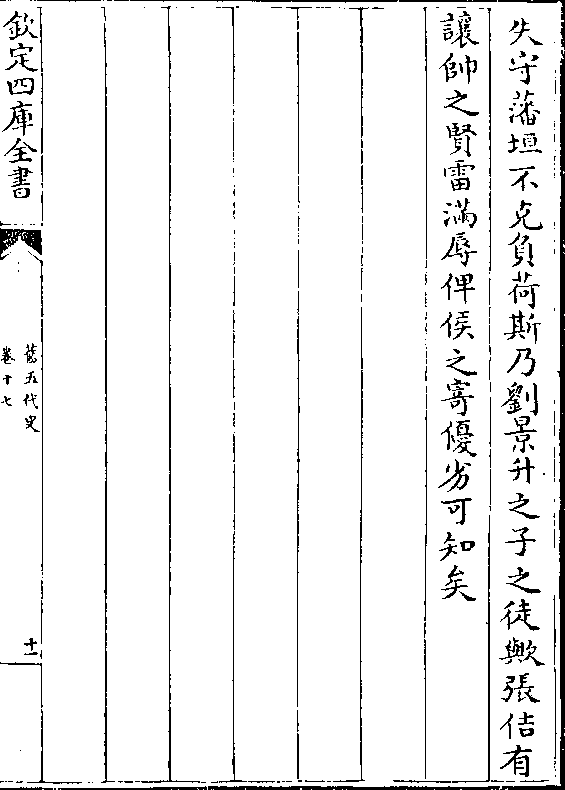 失守藩垣不克負荷斯乃劉景升之子之徒歟張佶有
讓帥之賢雷滿辱俾侯之寄優劣可知矣
欽定四庫全書
舊五代史
卷十七
十一